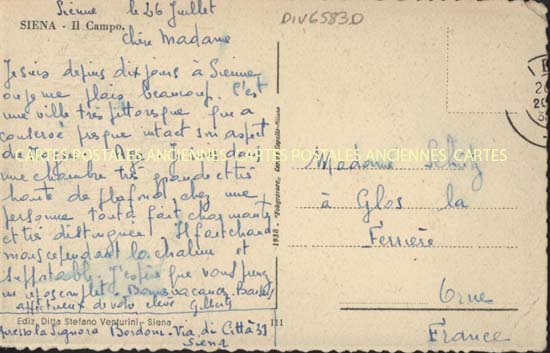 Sienne le 26 Juillet
DIV6583D
SIENA - Il Campo.
Chère Madame
Je suis depuis dix jours à Sienne
où je me plais beaucoup. C'est
une ville très pittoresque qui a
conservé presque intact son aspect
du Moyen Age. J'habite dans
une chambre très grande et très
haute de plafond, chez une
personne tout à fait charmante
et très distinguée. Il fait chaud
mais cependant la chaleur est
supportable. J'espère que vous prenez
un repos complet. Bonnes vacances. Baisers
affectueux de votre élève Gilberte
CARTES POSTALES ANCIENNES CARTES POSTALES ANCIENNES CARTES
Ediz. Ditta Stefano Venturini - Siena
111
presso Signora Bordoni - Via di Città 39
Siena
1938 -
Madame
à Glos la
Ferrière
Orne
France